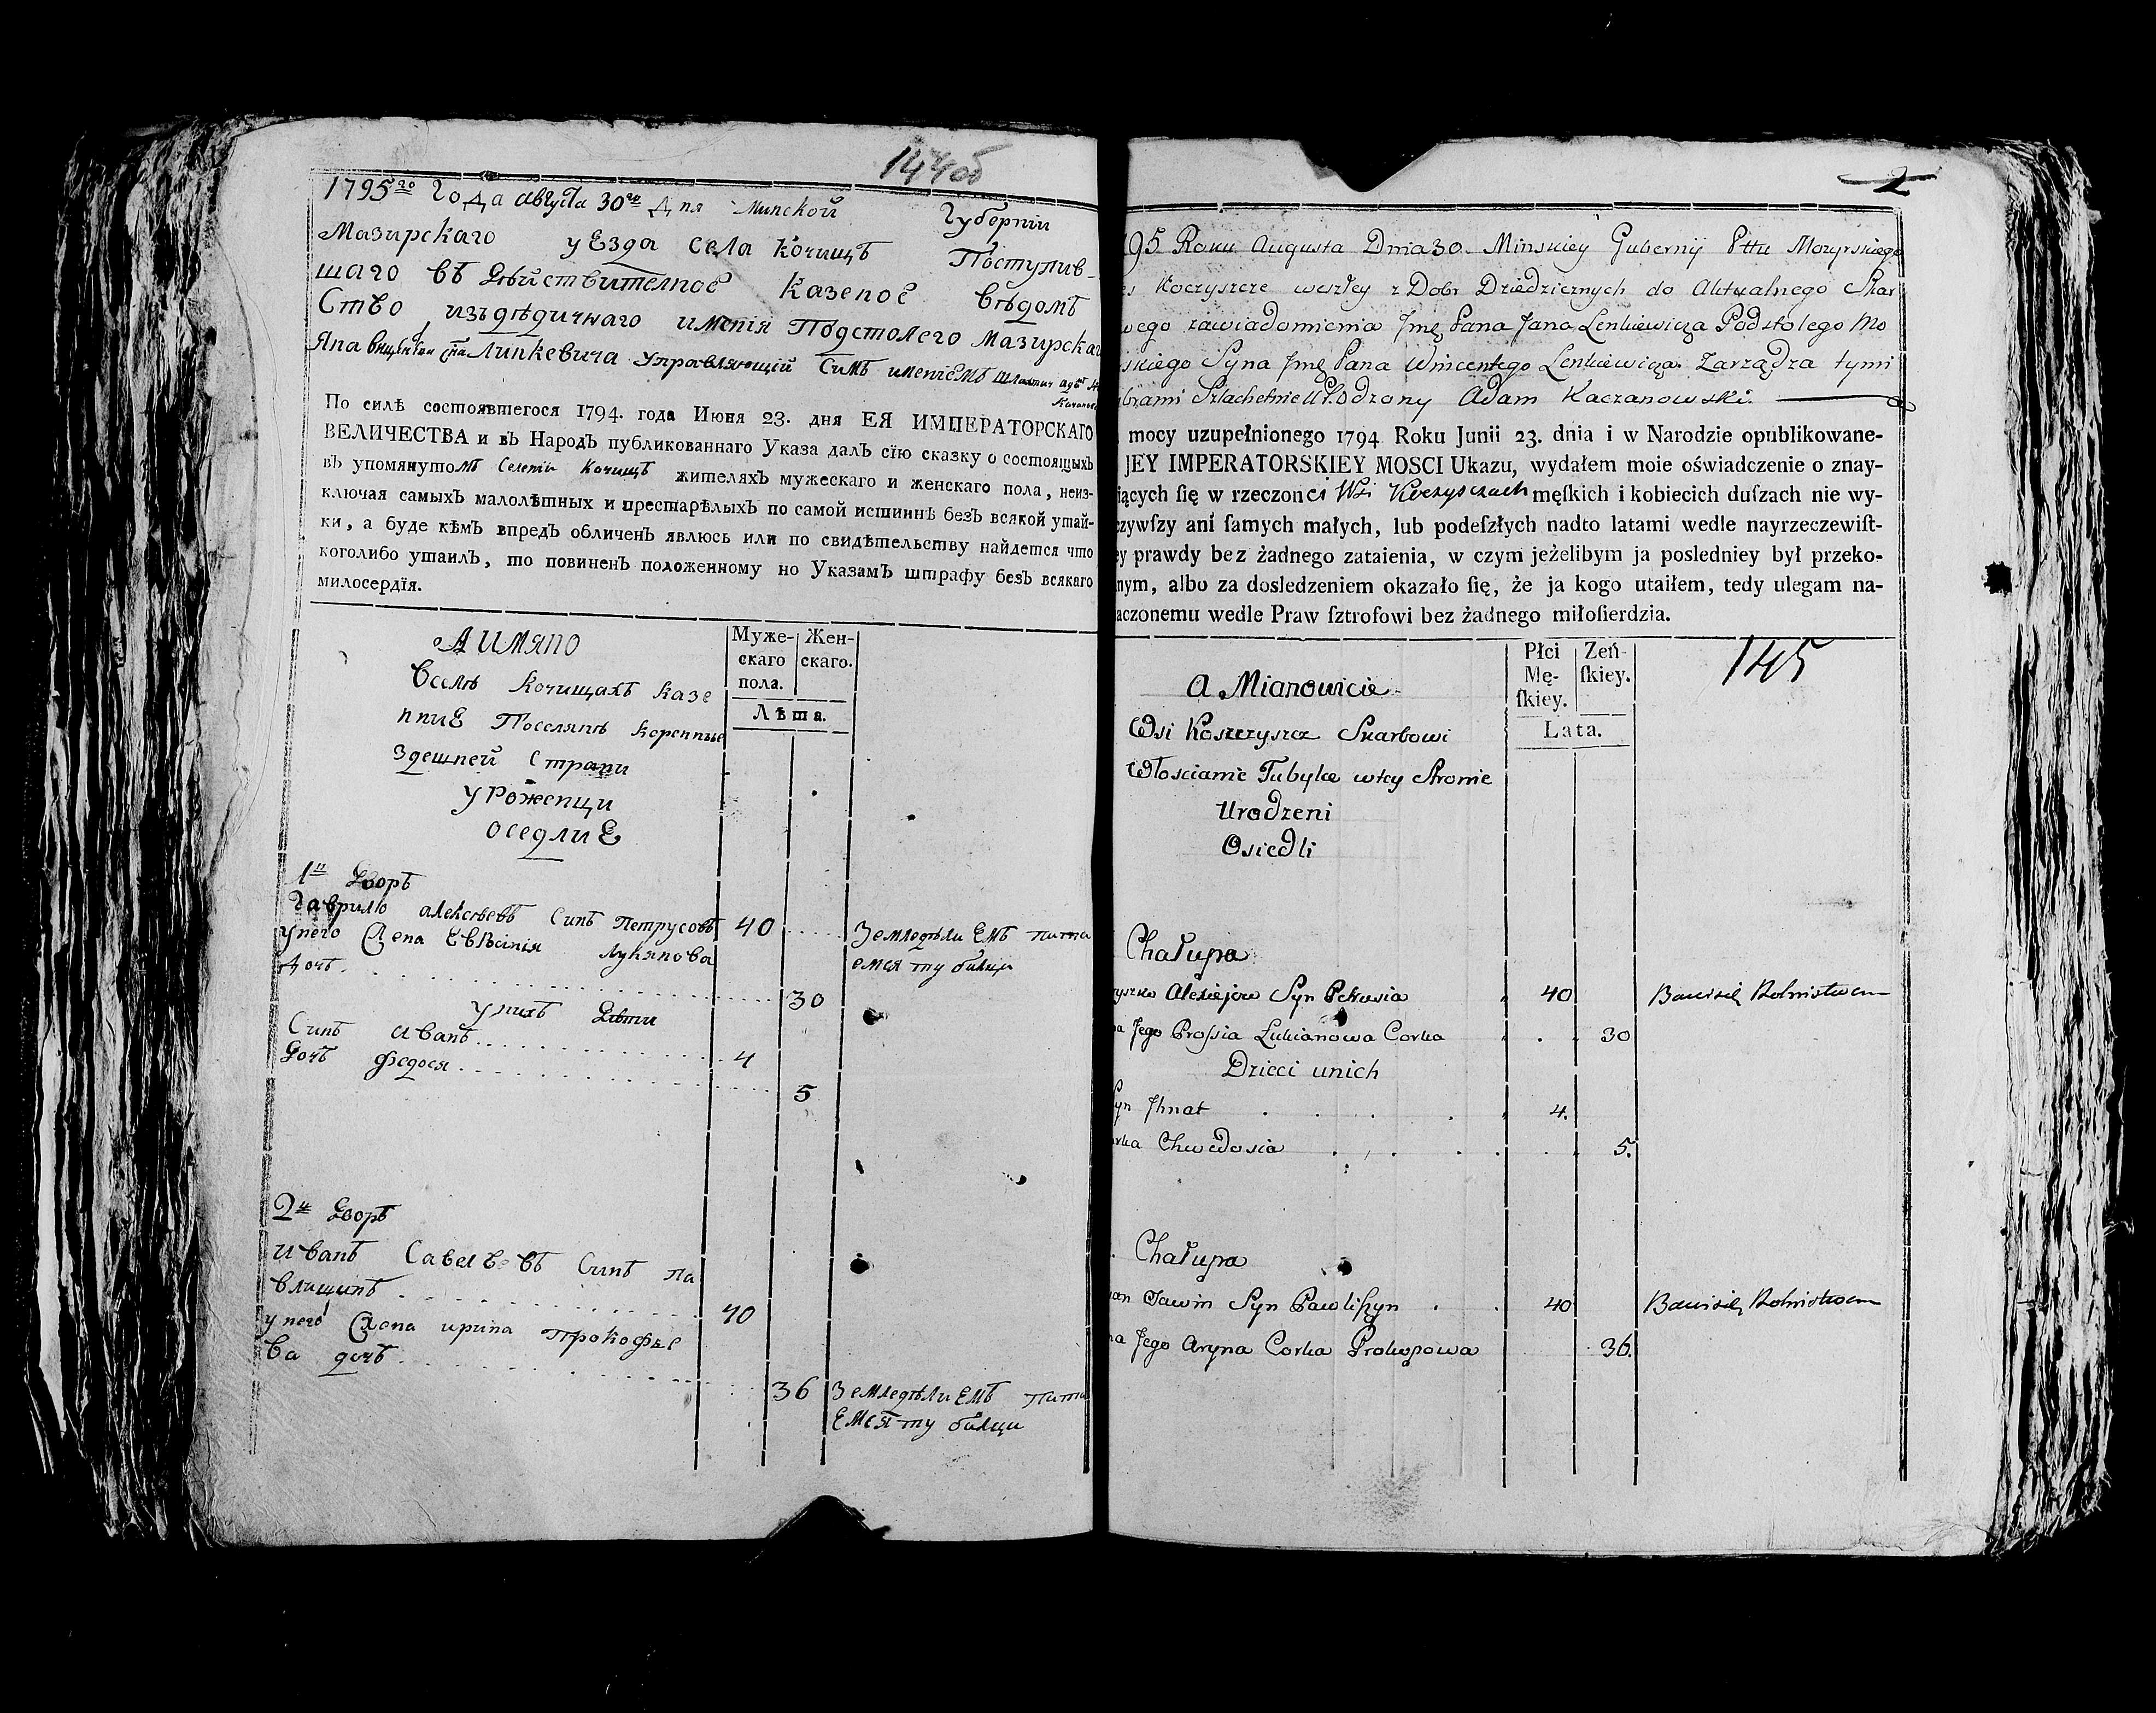 144об
1795го Года августа 30го Дня Минской Губернїи
Мазирскаго уезда села Кочищъ Поступив-
шаго въ Действителное Казеное ведомъ
Ство изъдедичнаго имения Подстолего Мазирскаг
Яна Линкевича Управляющий Симъ имениемъ
По силѣ состоявшегося 1794. года Июня 23. дня ЕЯ ИМПЕРАТОРСКАГО
ВЕЛИЧЕСТВА и въ Народъ публикованнаго Указа далъ сїю сказку о состоящыхъ
въ упомянутомъ Селении Кочищъ жителяхъ мужескаго и женскаго пола, неиз-
ключая самыхъ малолѣтныхъ и престарѣлыхъ по самой истиннѣ безъ всякой утай-
ки, а буде кѣмъ впредъ обличенъ явлюсь или по свидѣтельству найдется что
коголибо утаилъ, то повиненъ положенному по Указамъ штрафу безъ всякаго
милосердїя.
А ИМЯНО
Муже-
скаго
пола.
Жен-
скаго.
Лѣта.
Вселѣ Кочищахъ казе
нние Поселянѣ коренные
Здешней Страни
уроженци
оседлие
1й Дворъ
Гаврило алексѣевъ Синъ Петрусовъ 40
унего Жена Евпсиния Лукянова
дочъ 30
Земледѣлиемъ пита
емся ту билци
унихъ Дѣти
Синъ иванъ 4
Дочъ Федося 5
2й Дворъ
иванъ Савелевъ Синъ па
влищинъ 40
унего Жена ирина Прокофье
ва дочъ 36
Земледѣлиемъ пита
емся ту билци
2
95 Roku Augusta Dnia 30. Minskiey Gubernij Pttu Mozyrskiego
Koczyszcze weszłey z Dobr Dziedzicznych do Aktualnego Skar
wego zawiadomienia Jmę Pana Jana Lenkiewicza Podstolego Mo
skiego Syna Jmę Pana Wincentego Lenkiewicza. Zarządza tymi
brami Szlachetnie Ur.odzony Adam Kaczanowski.
mocy uzupełnionego 1794 Roku Junii 23. dnia i w Narodzie opublikowane-
JEY IMPERATORSKIEY MOSCI Ukazu, wydałem moie oświadczenie o znay-
iących ſię w rzeczonei Wsi Koczyszczach męſkich i kobiecich duſzach nie wy-
czywſzy ani ſamych małych, lub podeſzłych nadto latami wedle nayrzeczewiſt-
ey prawdy bez żadnego zataienia, w czym jeżelibym ja posledniey był przeko-
nym, albo za dosledzeniem okazało ſię, że ja kogo utaiłem, tedy ulegam na-
aczonemu wedle Praw ſztrofowi bez żadnego miłoſierdzia.
a Mianowicie
Płci
Mę-
ſkiey.
Zeń-
ſkiey.
Lata.
145
Wsi Koszczyszcz Skarbowi
Włoscianie Tubylce wtey Stronie
Urodzeni
Osiedli
Chałupa
Alexiejew Syn Petrusia 40 Bawisię Rolnistwem
Jego Prossia Lukianowa Corka 30
Dzieci unich
Syn Jhnat 4.
Chwedosia 5.
Chałupa
Sawin Syn Pawliszyn 40 Bawisię Rolnistwem
Jego Aryna Corka Prokopowa 36.